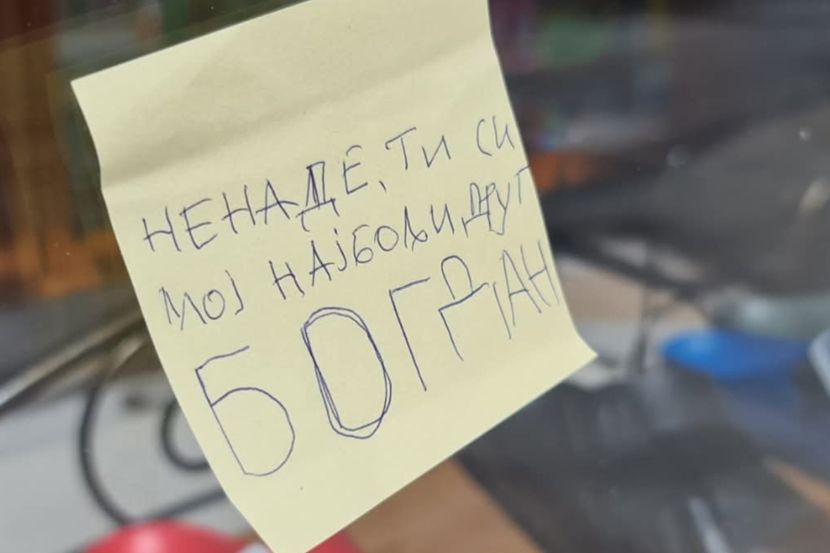 НЕНАДЕ, ТИ СИ
МОЈ НАЈБОЉИ ДРУГ
БОГДАН